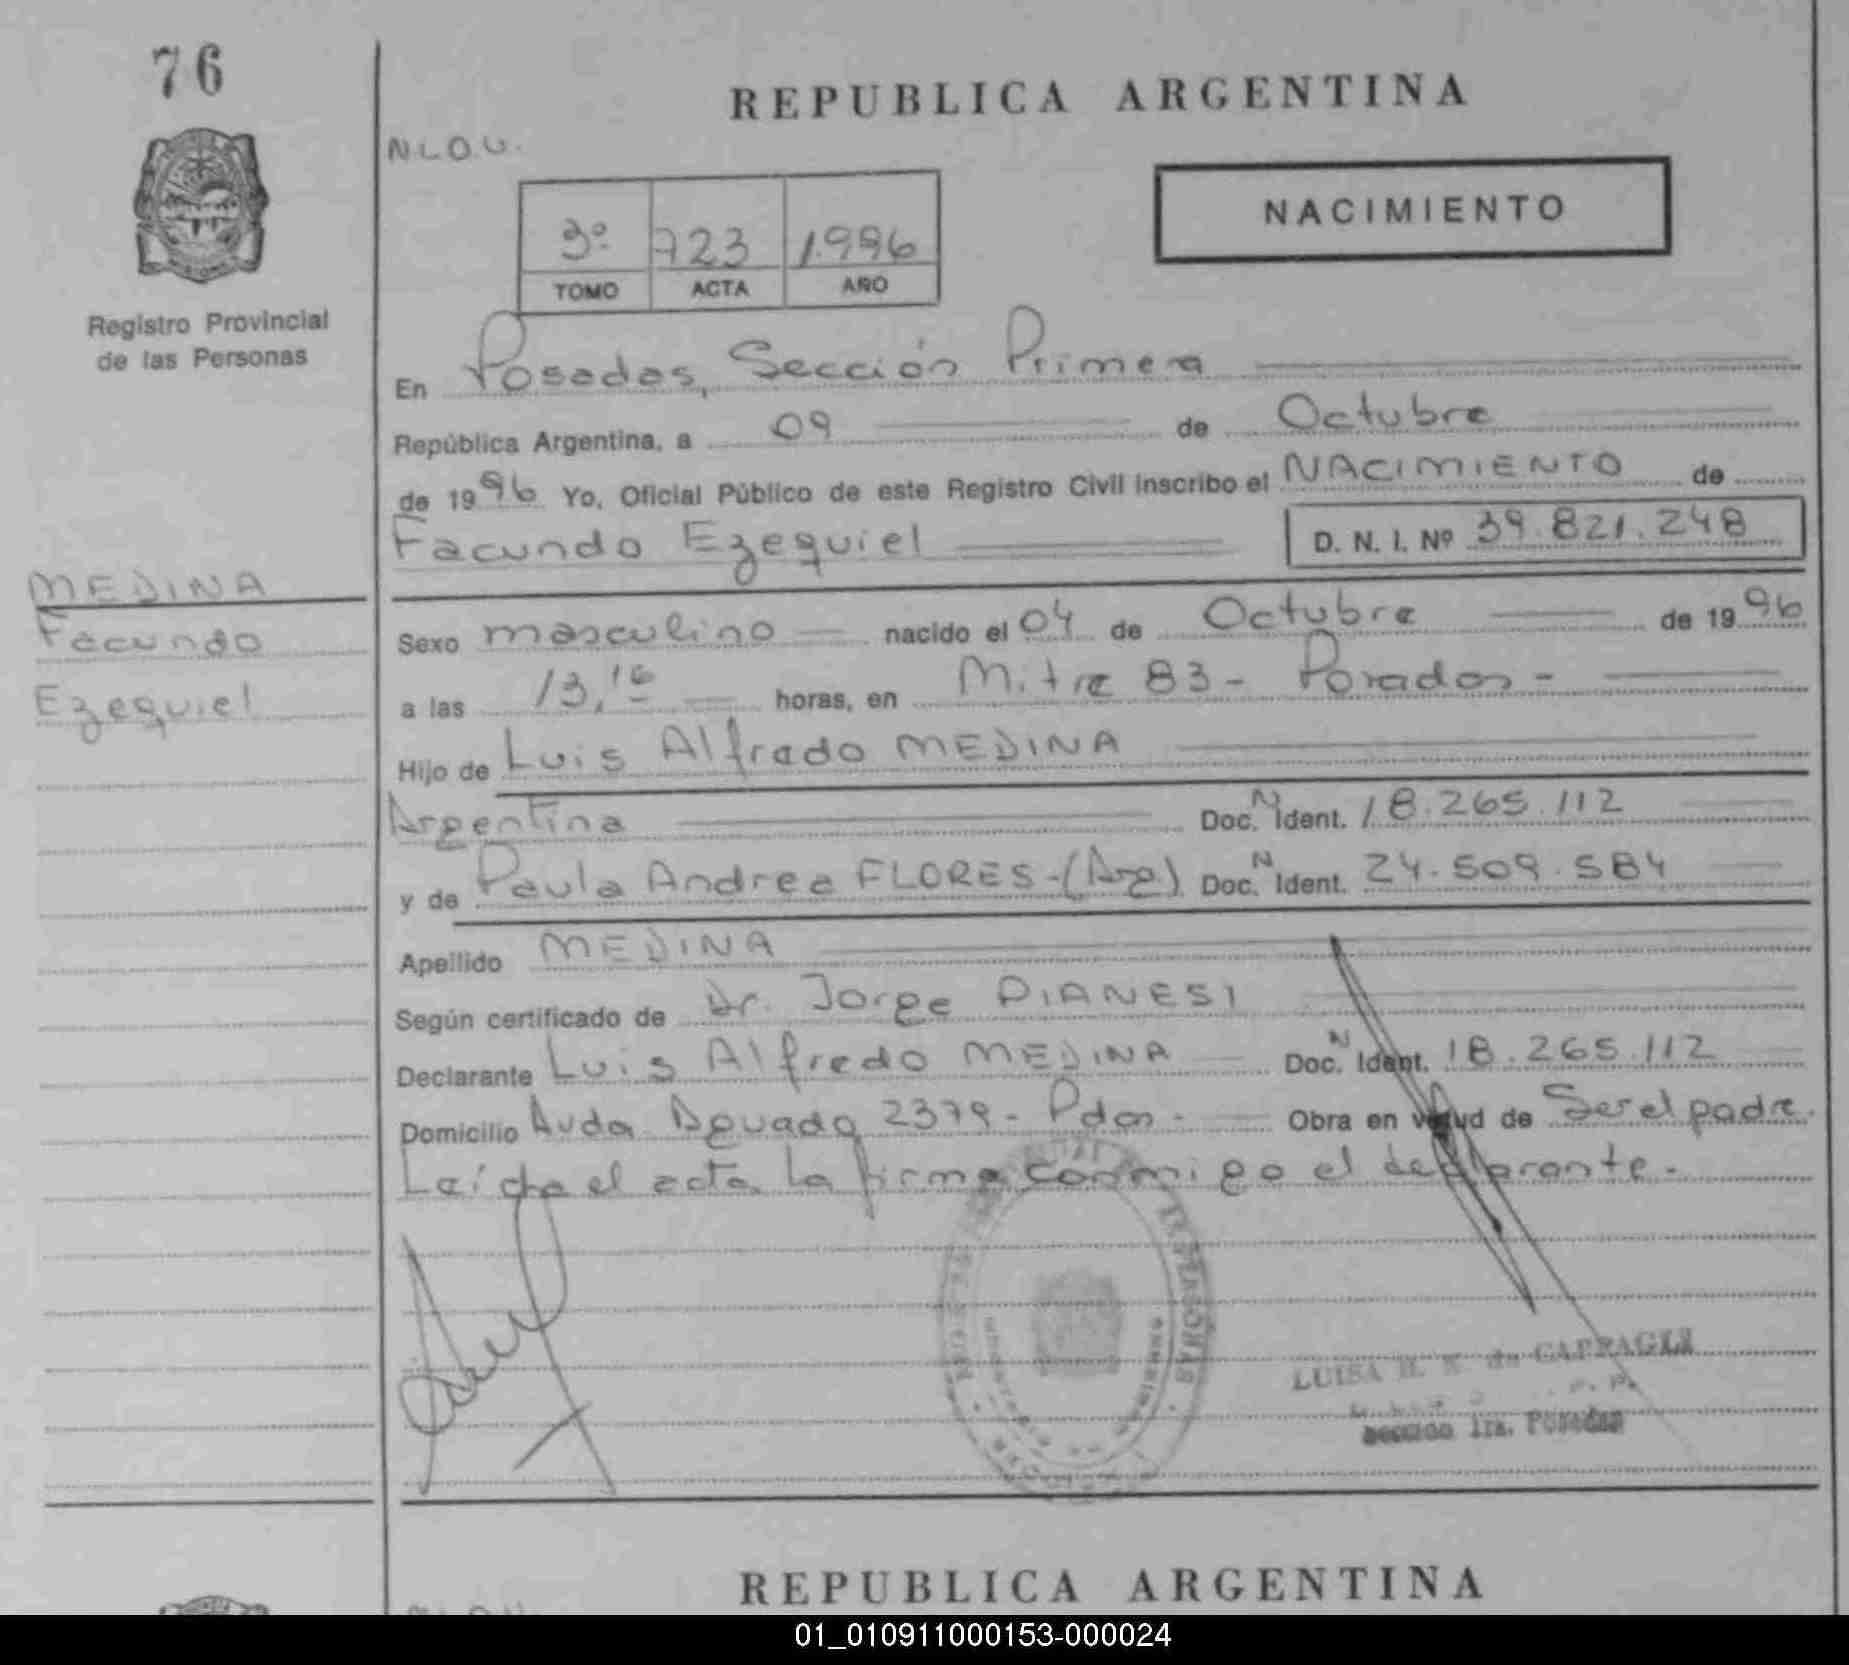 76
REPUBLICA ARGENTINA
N.L.O.U.
NACIMIENTO
3º 723 1.996
TOMO ACTA AÑO
Registro Provincial
de las Personas
En Posadas, Sección Primera
República Argentina, a 09 de Octubre
de 1996 Yo, Oficial Público de este Registro Civil inscribo el NACIMIENTO de
Facundo Ezequiel D. N. I. Nº 39.821.248
MEDINA
Facundo
Ezequiel
Sexo masculino nacido el 04 de Octubre de 1996
a las 13,16 horas, en Mitre 83 - Posadas -
Hijo de Luis Alfredo MEDINA
Argentina Doc. N Ident. 18.265.112
y de Paula Andrea FLORES - (Arg.) Doc. N Ident. 24.509.584
Apellido MEDINA
Según certificado de Dr. Jorge DIANESI
Declarante Luis Alfredo MEDINA Doc. N Ident. 18.265.112
Domicilio Avda 2379 - Pdas - Obra en virtud de Ser el padre.
Leída el acta la firma conmigo el declarante.
LUISA de
Sección 1ra. Posadas
REPUBLICA ARGENTINA
01_010911000153-000024